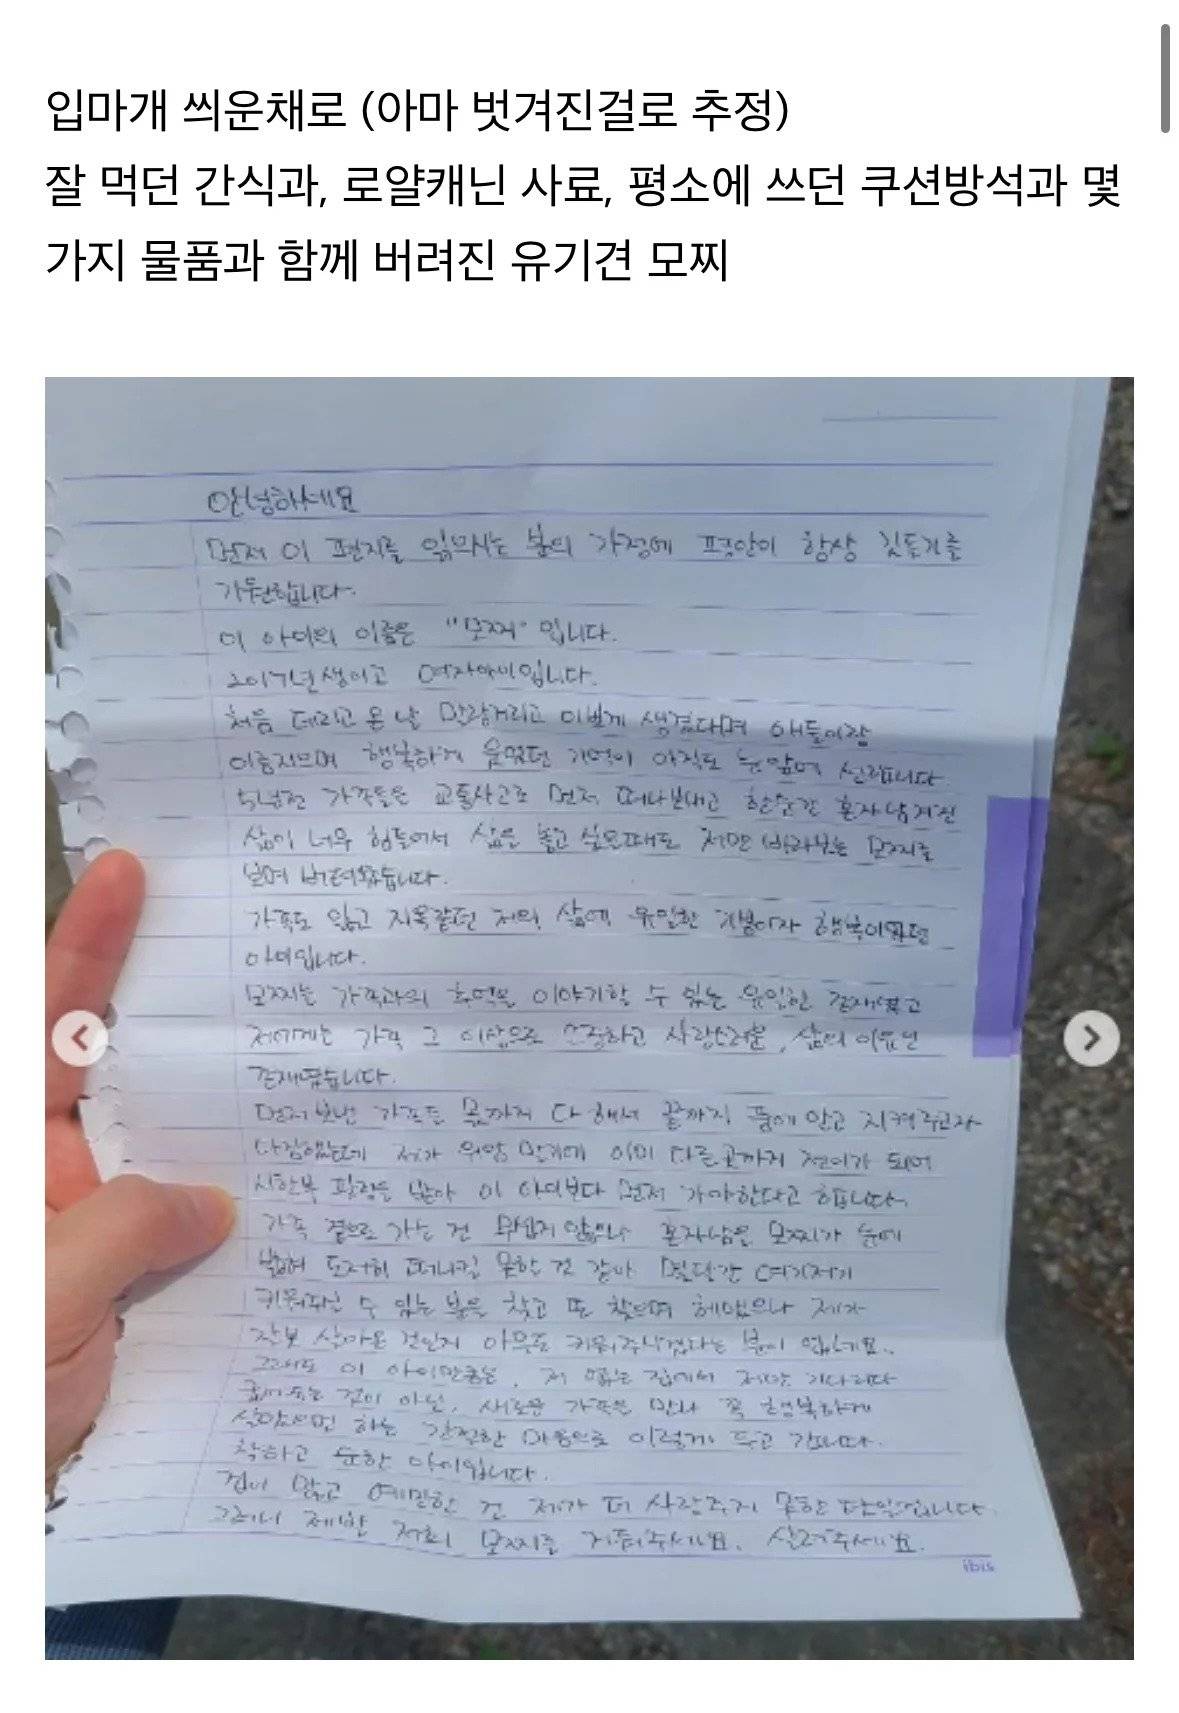 입마개 씌운채로 (아마 벗겨진걸로 추정)
잘 먹던 간식과, 로얄캐닌 사료, 평소에 쓰던 쿠션방석과 몇
가지 물품과 함께 버려진 유기견 모찌
안녕하세요
먼저 이 편지를 읽으시는 분의 가정에 평안이 항상 깃들기를
기원합니다.
이 아이의 이름은 "모찌" 입니다.
2017년생이고 여자아이입니다.
처음 데리고 온 날 말랑거리고 이쁘게 생겼다며 애들이랑
이름지으며 행복하게 웃었던 기억이 아직도 눈앞에 선합니다.
5년전 가족들을 교통사고로 먼저 떠나보내고 한순간 혼자 남겨진
삶이 너무 힘들어서 삶을 놓고 싶을때도 저만 바라보는 모찌를
보며 버텨왔습니다.
가족도 잃고 지옥같던 저의 삶에 유일한 기쁨이자 행복이었던
아이입니다.
모찌는 가족과의 추억을 이야기할 수 있는 유일한 존재였고
저에게는 가족 그 이상으로 소중하고 사랑스러운, 삶의 이유인
존재였습니다.
먼저보낸 가족들 몫까지 다 해서 끝까지 품에 안고 지켜주고자
다짐했는데 제가 위암 말기에 이미 다른곳까지 전이가 되어
시한부 판정을 받아 이 아이보다 먼저 가야한다고 합니다.
가족 곁으로 가는 건 무섭지 않으나 혼자남을 모찌가 눈에
밟혀 도저히 떠나질 못할 것 같아 몇달간 여기저기
키워주실 수 있는 분을 찾고 또 찾으며 헤맸으나 제가
잘못 살아온 것인지 아무도 키워주시겠다는 분이 없네요..
그래도 이 아이만큼은, 저 없는 집에서 저만 기다리다
굶어죽는 것이 아닌, 새로운 가족을 만나 꼭 행복하게
살았으면 하는 간절한 마음으로 이렇게 두고 갑니다.
착하고 순한 아이입니다.
겁이 많고 예민한 건 제가 더 사랑주지 못한 탓일겁니다.
그러니 제발 저희 모찌를 거둬주세요. 살려주세요.
ibis